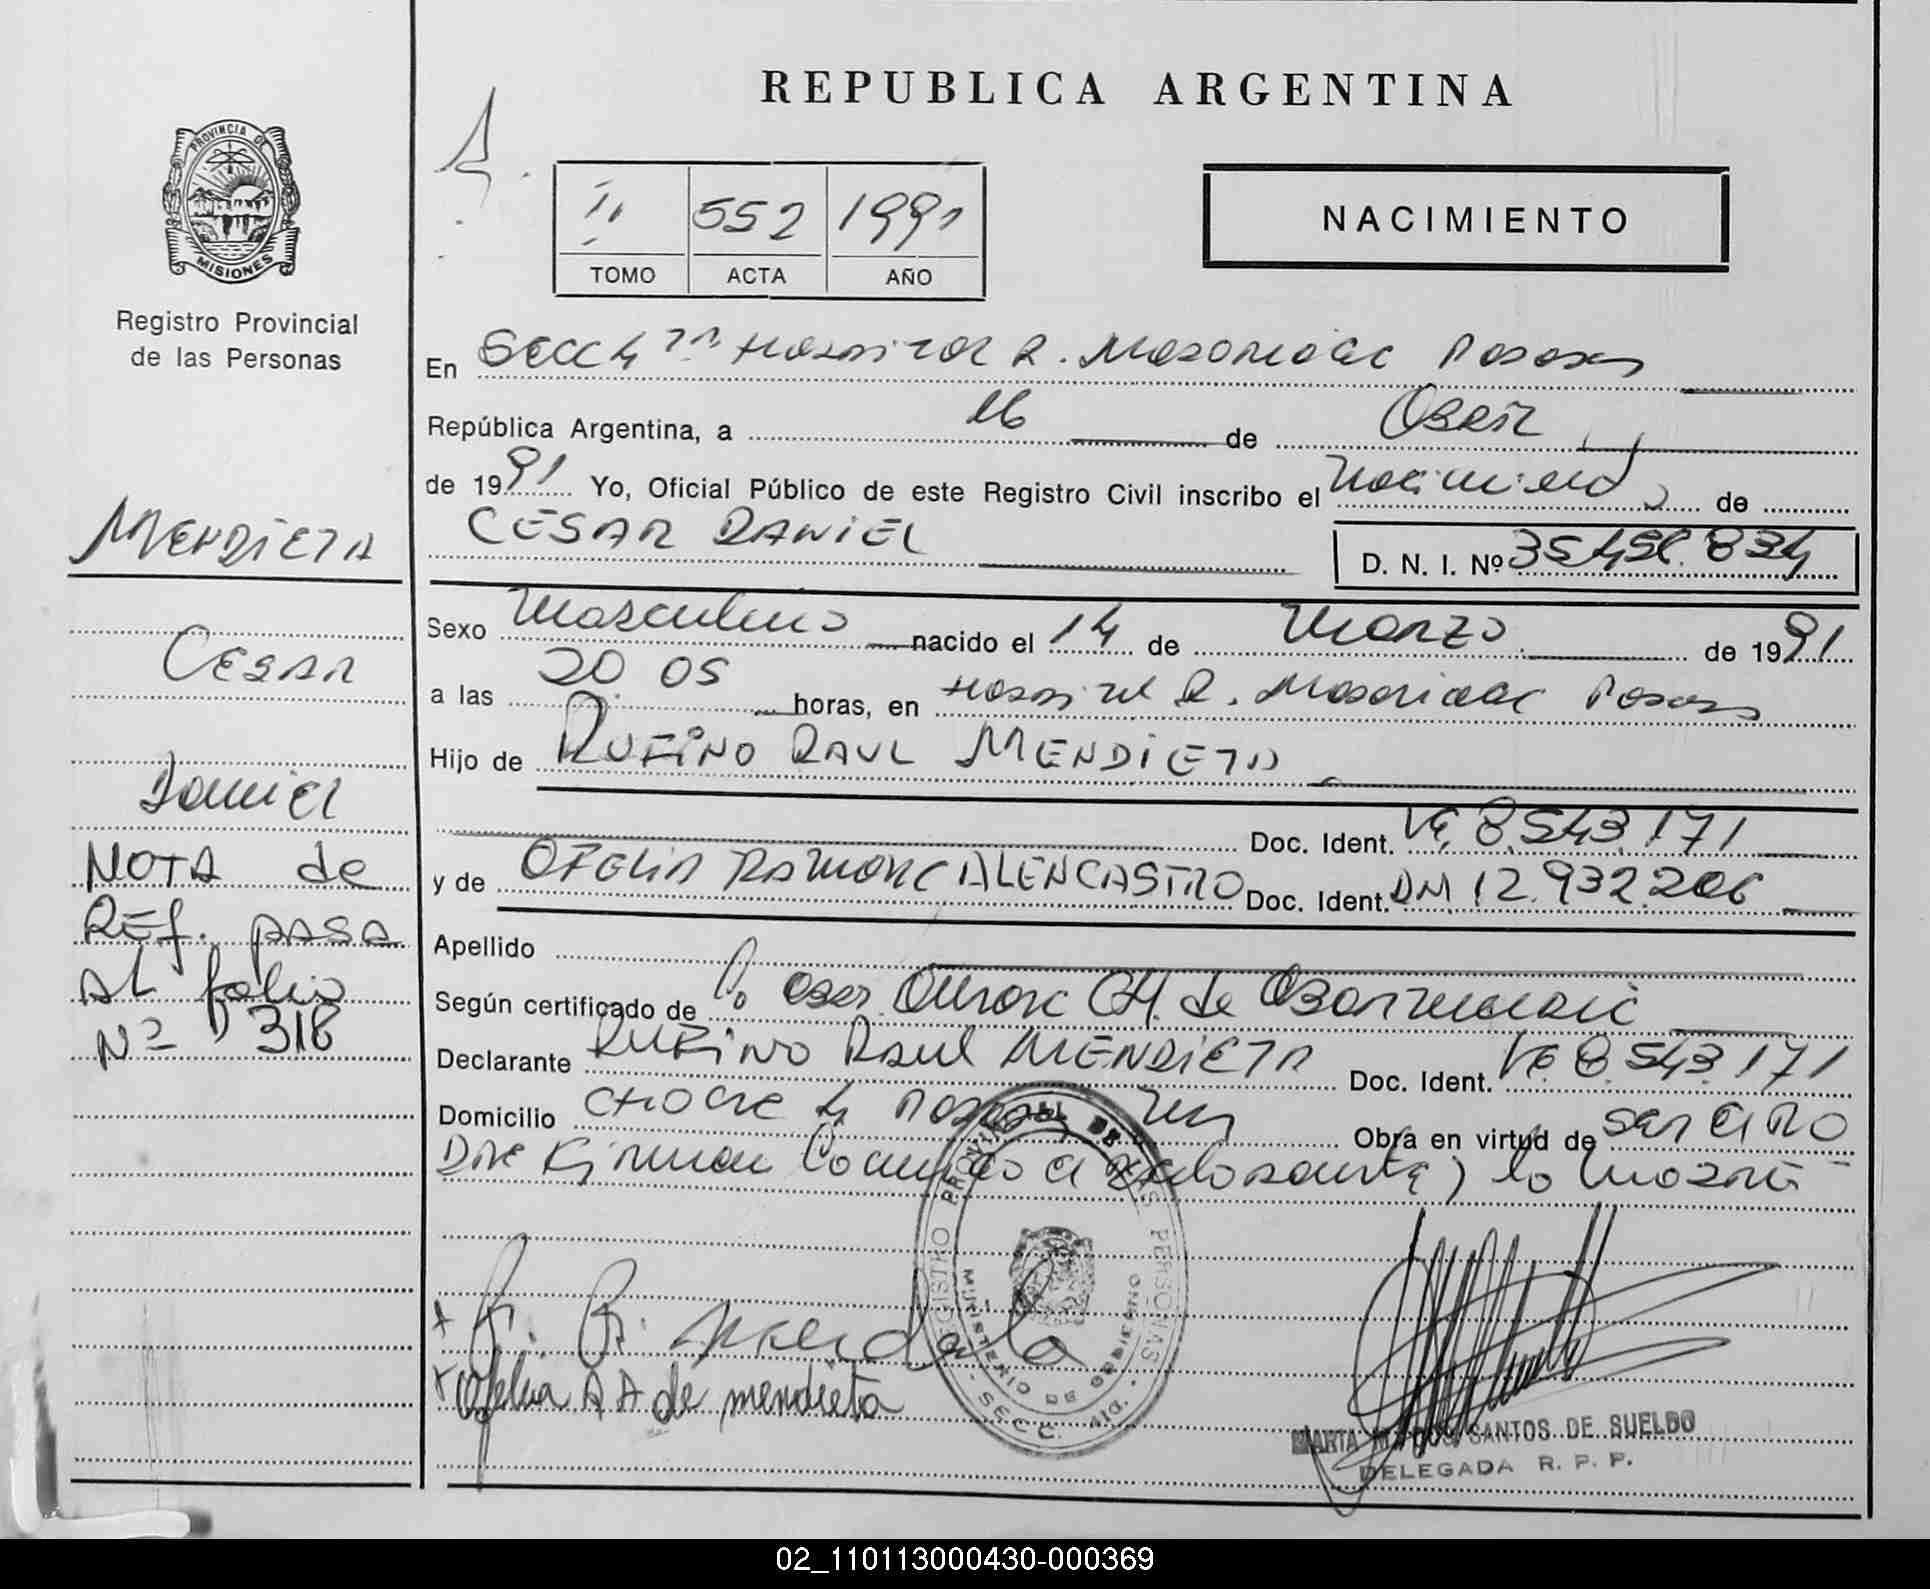 REPUBLICA ARGENTINA
PROVINCIA DE
MISIONES
Registro Provincial
de las Personas
II 552 1991
TOMO ACTA AÑO
NACIMIENTO
En Secc 4 Hospital R. Madariaga Posadas
República Argentina, a 16 de Abril
de 1991 Yo, Oficial Público de este Registro Civil inscribo el nacimiento de
CESAR DANIEL
D. N. I. Nº 35.456.834
MENDIETA
CESAR
Daniel
NOTA de
REf. pasa
AL folio
Nº 318
Sexo masculino nacido el 14 de marzo de 1991
a las 20 05 horas, en Hospital R. Madariaga Posadas
Hijo de RUFINO RAUL MENDIETA
Doc. Ident. 8.543.171
y de OFELIA RAMONA ALENCASTRO Doc. Ident. DM 12.932.206
Apellido
Según certificado de
Declarante RUFINO RAUL MENDIETA Doc. Ident. 8.543.171
Domicilio 4 Obra en virtud de ser el
y la
Ofelia A A de mendieta
REGISTRO PROVINCIAL DE LAS PERSONAS
MINISTERIO DE GOBIERNO
SECC. 4ta.
MARTA M. DOS SANTOS DE SUELDO
DELEGADA R. P. P.
02_110113000430-000369